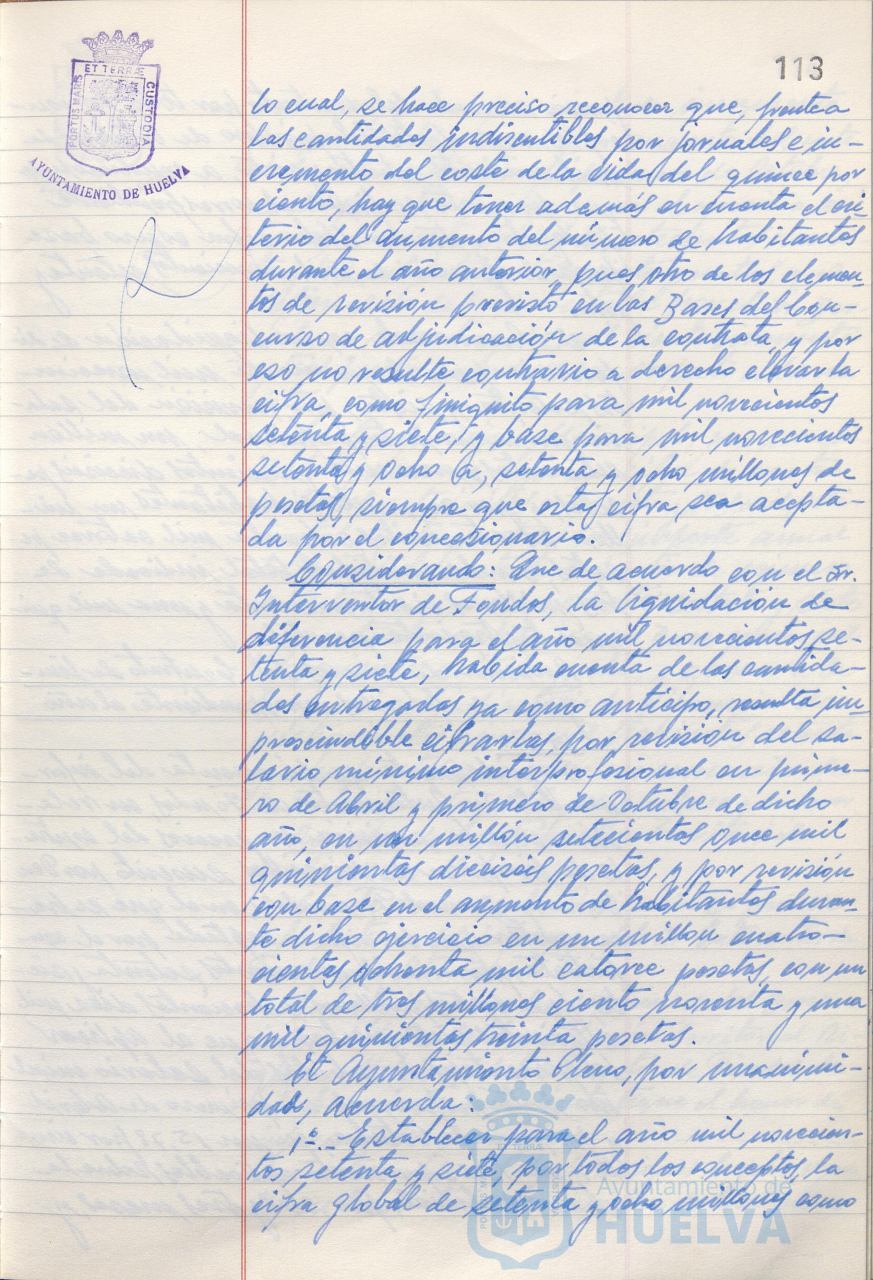 113
PORTUS MARIS
ET TERRÆ
CUSTODIA
AYUNTAMIENTO DE HUELVA
lo cual, se hace preciso reconocer que, frente a
las cantidades indiscutibles por jornales e in-
cremento del coste de la vida del quince por
ciento, hay que tener además en cuenta el cri-
terio del aumento del número de habitantes
durante el año anterior, pues otro de los elemen-
tos de revisión previsto en las Bases del Con-
curso de adjudicación de la contrata, y por
eso no resulte contrario a derecho elevar la
cifra, como finiquito para mil novecientos
setenta y siete, y base para mil novecientos
setenta y ocho a, setenta y ocho millones de
pesetas, siempre que esta cifra sea acepta-
da por el concesionario.
Considerando: Que de acuerdo con el Sr.
Interventor de Fondos, la liquidación de
diferencia para el año mil novecientos se-
tenta y siete, habida cuenta de las cantida-
des entregadas ya como anticipo, resulta im-
prescindible cifrarlas, por revisión del sa-
lario mínimo interprofesional en prime-
ro de Abril y primero de Octubre de dicho
año, en un millón setecientas once mil
quinientas dieciséis pesetas, y por revisión
con base en el aumento de habitantes duran-
te dicho ejercicio en un millón cuatro-
cientas ochenta mil catorce pesetas, con un
total de tres millones ciento noventa y una
mil quinientas treinta pesetas.
El Ayuntamiento Pleno, por unanimi-
dad, acuerda:
1º.- Establecer para el año mil novecien-
tos setenta y siete por todos los conceptos, la
cifra global de setenta y ocho millones como
Ayuntamiento de
HUELVA